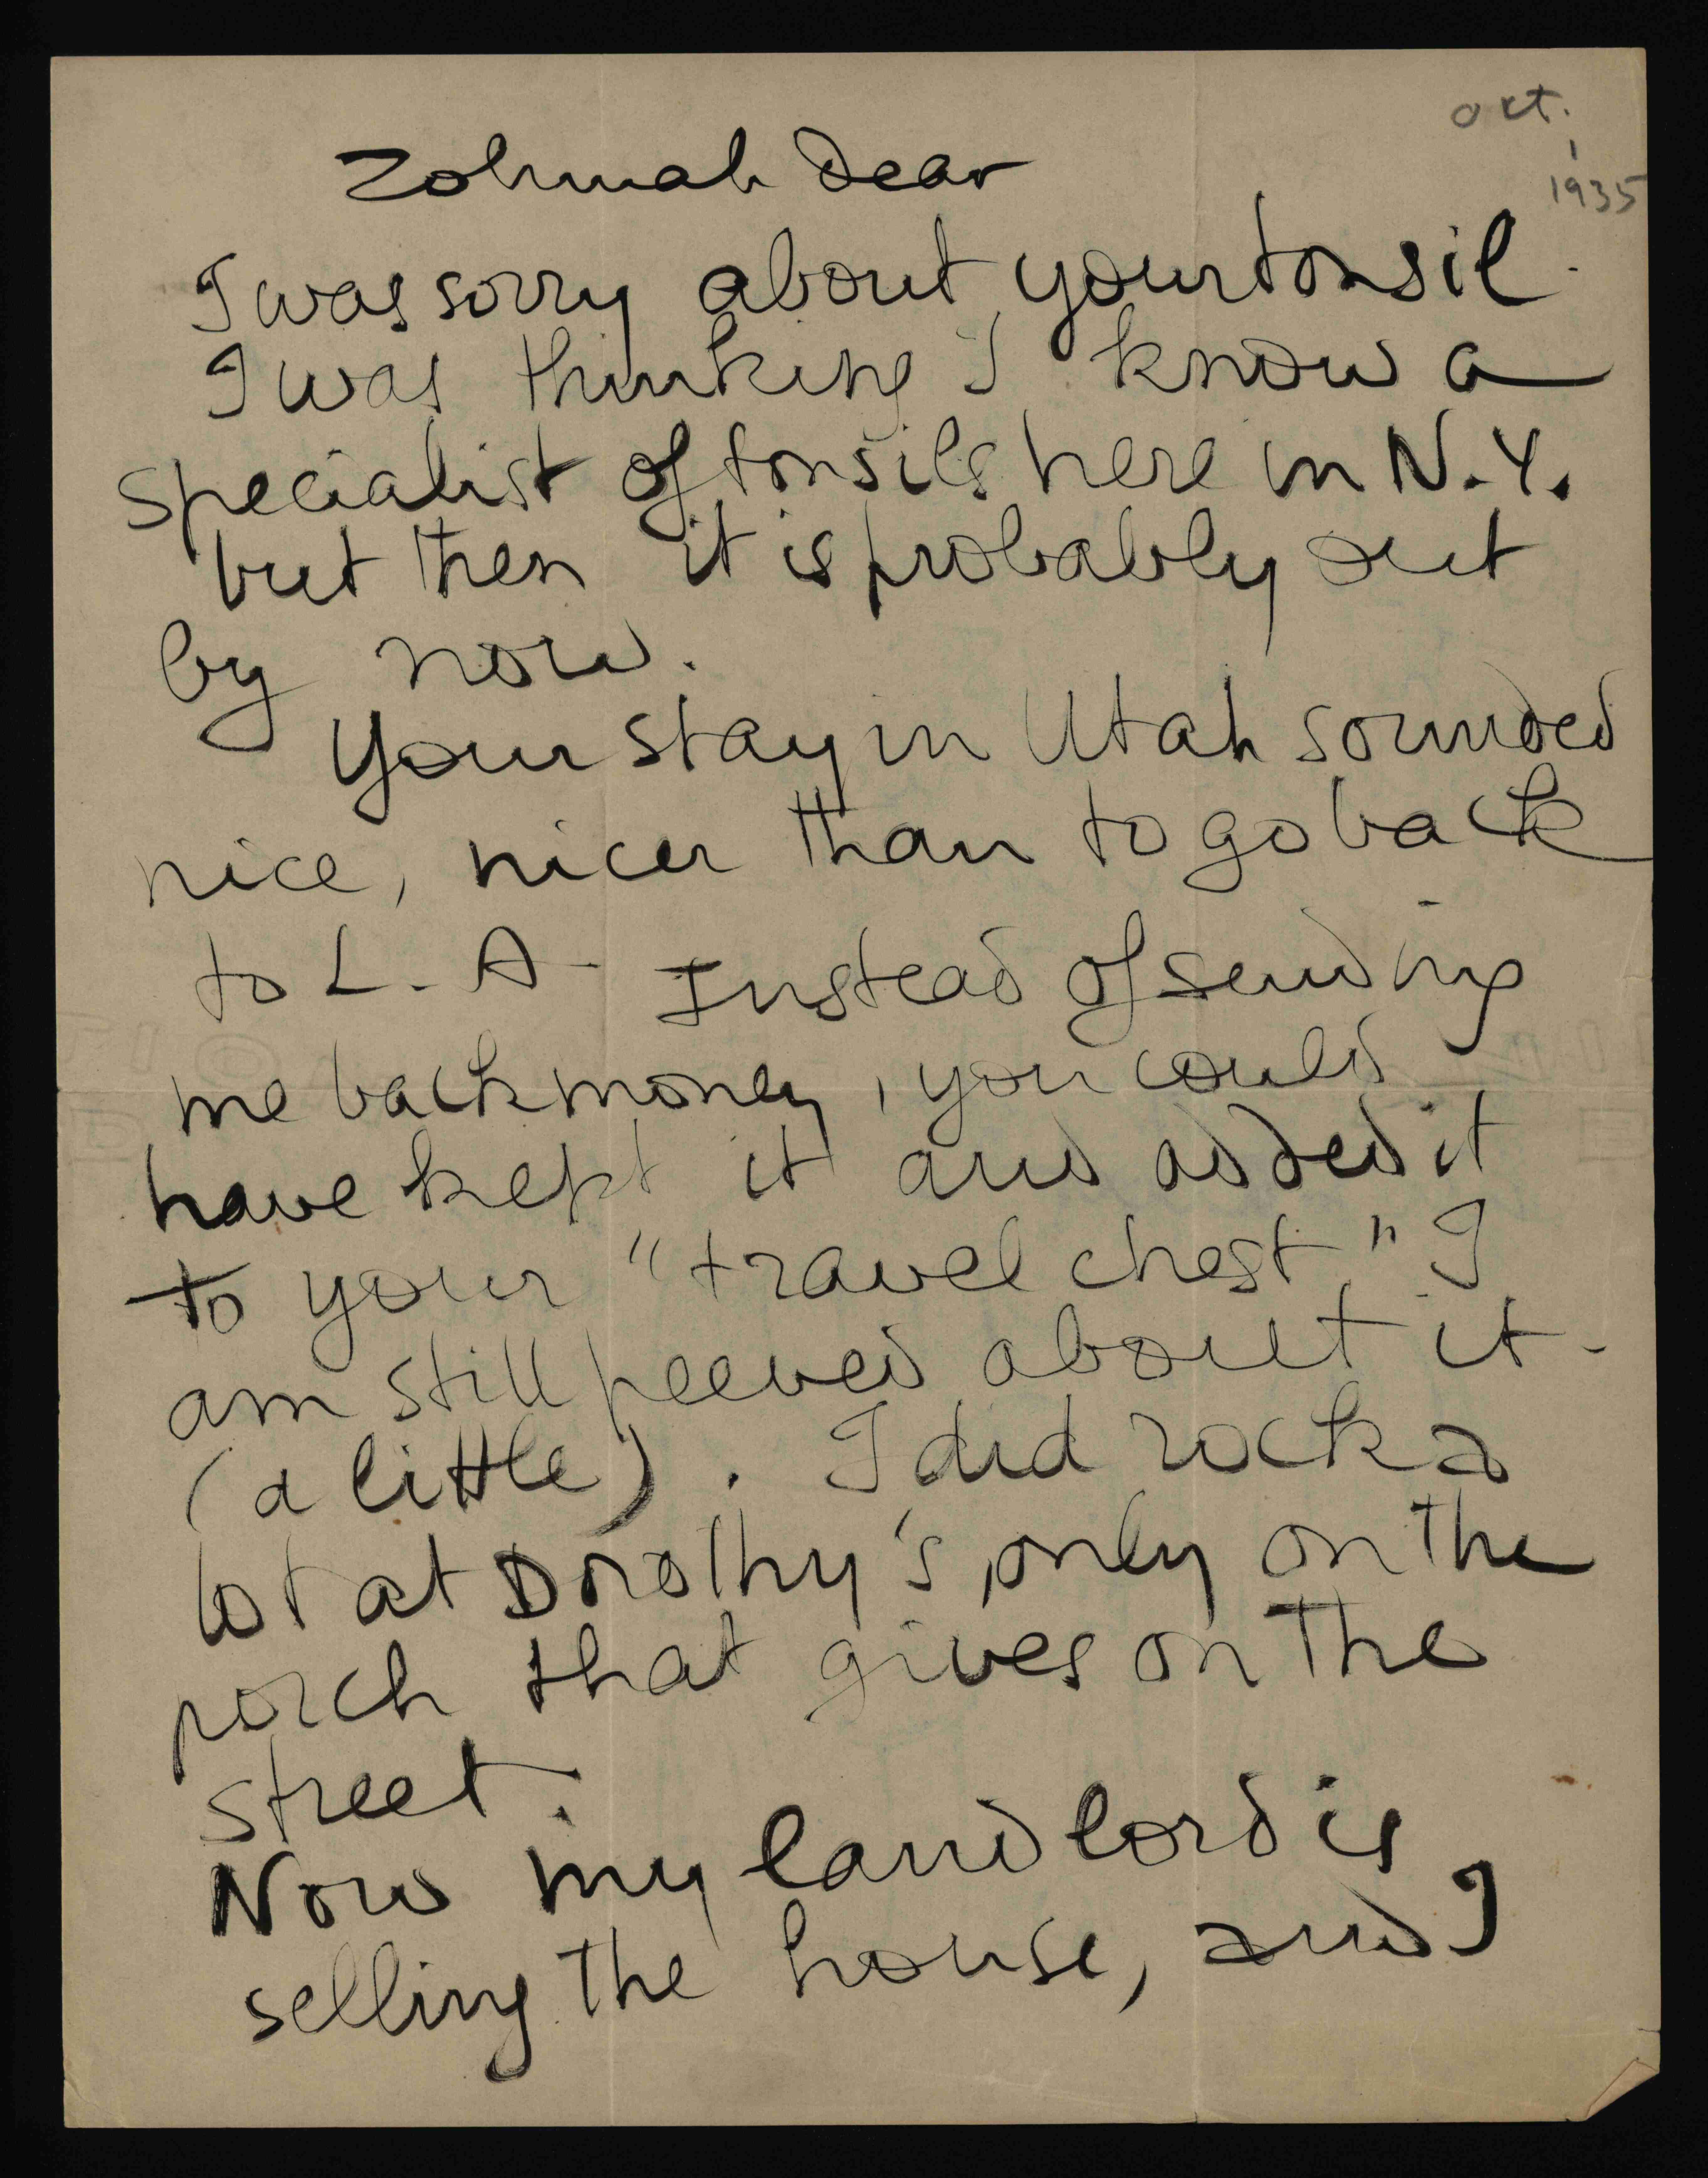 oct.
1935
Zohmah Dear
I was sorry about your tonsil.
I was thinking I know a
specialist of tonsils here in N.Y.
but then it is probably out
by now.
Your stay in Utah sounded
nice, nicer than to go back
to L.A. Instead of sending
me back money, you could
have kept it and added it
to your "travel chest." I
am still peeved about it.
(a little). I did rock a
lot at Dorothy's, only on the
porch that gives on the
street.
Now my landlord is
selling the house, and I